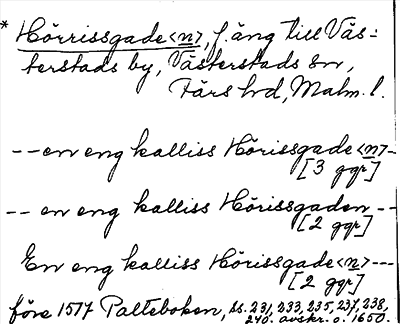 * Hörrissgade<n>, f. äng till Väs-
terstads by, Västerstads sn,
Färs hd, Malm. l.
-- en eng kalliss Hörissgade<n>-
[3 ggr]
-- en eng kalliss Hörissgaden --
[2 ggr]
En eng kalliss Hörissgade<n> ---
[2 ggr]
före 1517 Palteboken, ss. 231, 233, 235, 237, 238,
240. avskr. o. 1650.